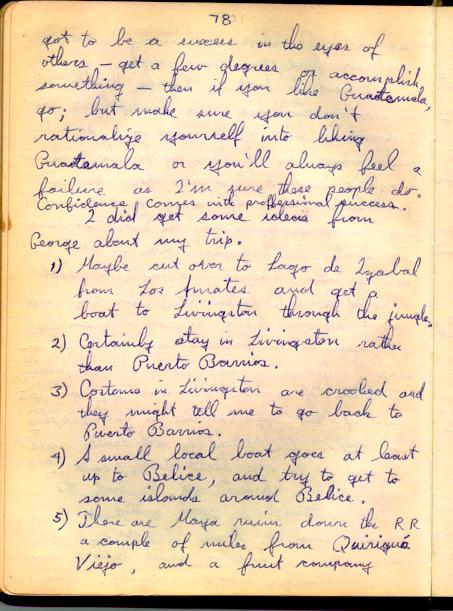 78
got to be a success in the eyes of
others – get a few degrees or accomplish
something – then if you like Guatemala,
go; but make sure you don't
rationalize yourself into liking
Guatemala or you'll always feel a
failure as I'm sure these people do.
Confidence comes with proffessional success.
I did get some ideas from
George about my trip.
1) Maybe cut over to Lago de Izabal
from Los and get a
boat to Livingston through the jungle,
2) Certainly stay in Livingston rather
than Puerto Barrios.
3) Costoms in Livingston are crooked and
they might tell me to go back to
Puerto Barrios.
4) A small local boat goes at least
up to Belice, and try to get to
some islands around Belice.
5) There are Maya ruins down the RR
a couple of miles from Quiriguá
Viejo, and a fruit company